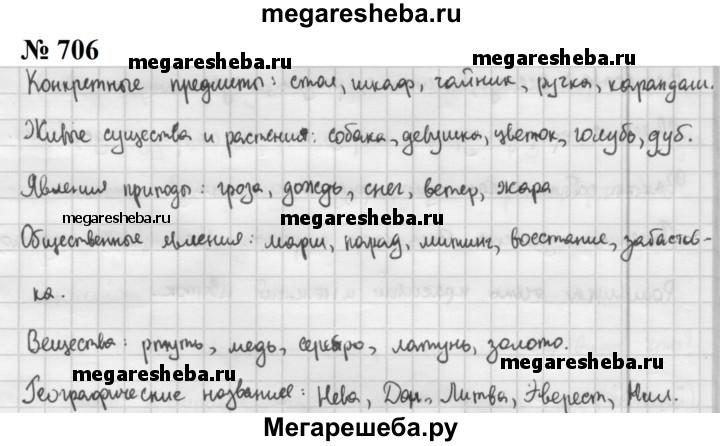 megaresheba.ru
№ 706
megaresheba.ru megaresheba.ru
Конкретные предметы: стол, шкаф, чайник, ручка, карандаш.
megaresheba.ru megaresheba.ru
Живые существа и растения: собака, девушка, цветок, голубь, дуб.
Явления природы: гроза, дождь, снег, ветер, жара
megaresheba.ru megaresheba.ru
Общественные явления: марш, парад, митинг, восстание, забастов-
ка.
Вещества: ртуть, медь, серебро, латунь, золото.
megaresheba.ru megaresheba.ru
Географические названия: Нева, Дон, Литва, Эверест, Нил.
Мегарешеба.ру